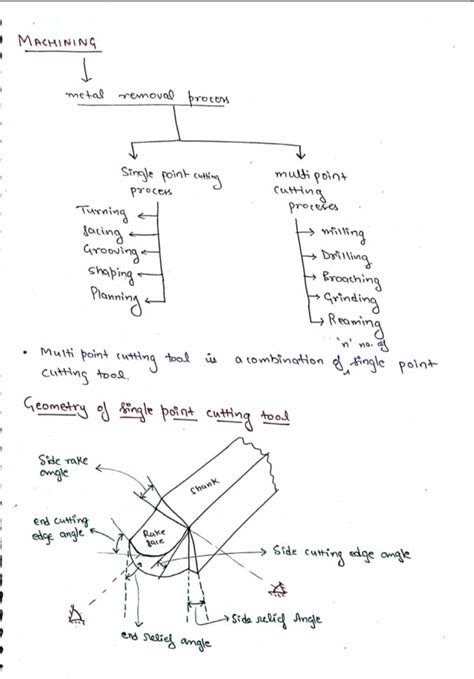 MACHINING
metal removal process
Single point cutting
process
Turning
facing
Grooving
shaping
Planning
multi point
cutting
proceses
milling
Drilling
Broaching
Grinding
Reaming
'n' no. of
• Multi point cutting tool is a combination of single point
cutting tool.
Geometry of single point cutting tool
Side rake
angle
Shank
end cutting
edge angle
Rake
face
Side cutting edge angle
Side relief Angle
end relief angle